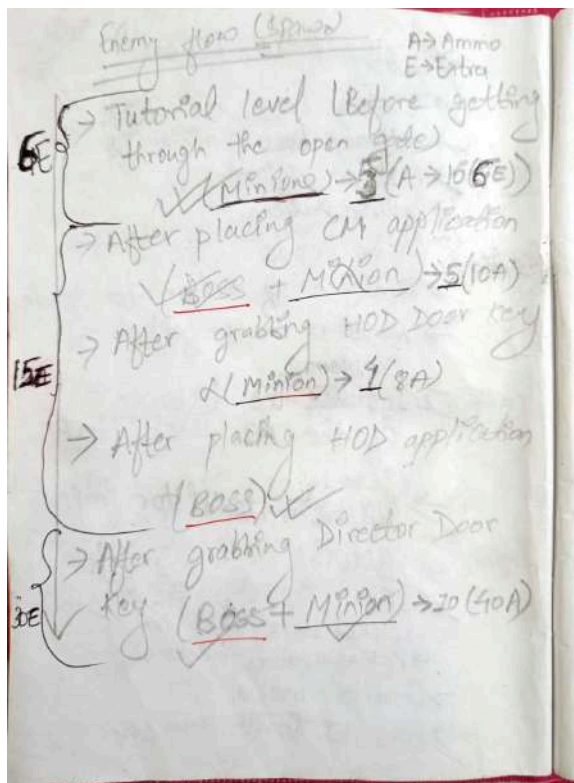 Enemy flow (Spawn)
A→Ammo
E→Extra
→ Tutorial level (Before getting
through the open gate)
6E
(Minions) → 5 (A → 10 6E))
→ After placing CM application
(Boss + Minion) → 5 (10A)
→ After grabbing HOD Door key
15E
(Minion) → 4 (8A)
→ After placing HOD application
(BOSS)
→ After grabbing Director Door
30E
Key (Boss + Minion) → 10 (40A)